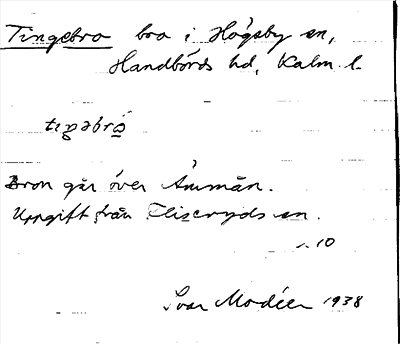 Tingebro bro i Högsby sn,
Handbörds hd, Kalm. l.
tıŋəbrö̀
Bron går över Åmmån.
Uppgift från Fliseryds sn.
s. 10
Ivar Modéer 1938